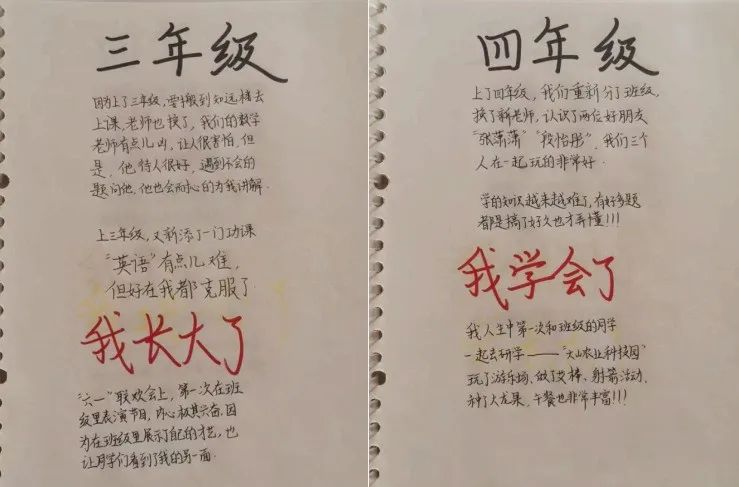 三年级
因为上了三年级，要搬到知远楼去
上课，老师也换了，我们的数学
老师有点儿凶，让人很害怕，但
是，他待人很好，遇到不会的
题问他，他也会耐心的为我讲解.
上三年级，又新添了一门功课
“英语”有点儿难，
但好在我都克服了
我长大了
“六一”联欢会上，第一次在班
级里表演节目，内心极其兴奋，因
为在班级里展示了自己的才艺，也
让同学们看到了我的另一面.
四年级
上了四年级，我们重新分了班级，
换了新老师，认识了两位好朋友
“张潇潇”“段怡彤”，我们三个
人在一起玩的非常好.
学的知识越来越难了，有好多题
都是搞了好久也才弄懂!!!
我学会了
我人生中第一次和班级的同学
一起去研学——“大山农业科技园”
玩了游乐场、做了艾棒、射箭活动、
种了火龙果，午餐也非常丰富!!!